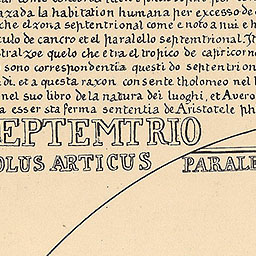 azada la habitation humana per excesso de
che el zona septentrional come e noto a nui e h
culo de cancro et el parallelo septemtrional. It
stralzoe quelo che etra el tropico de capricorno
sono correspondentia questi do septentrion
di. et a questa raxon consente tholomeo nel l
nel suo libro de la natura dei luoghi, et Avero
a esser sta ferma sententia de Aristotele ph
EPTEMTRIO
OLUS ARTICUS PARALE